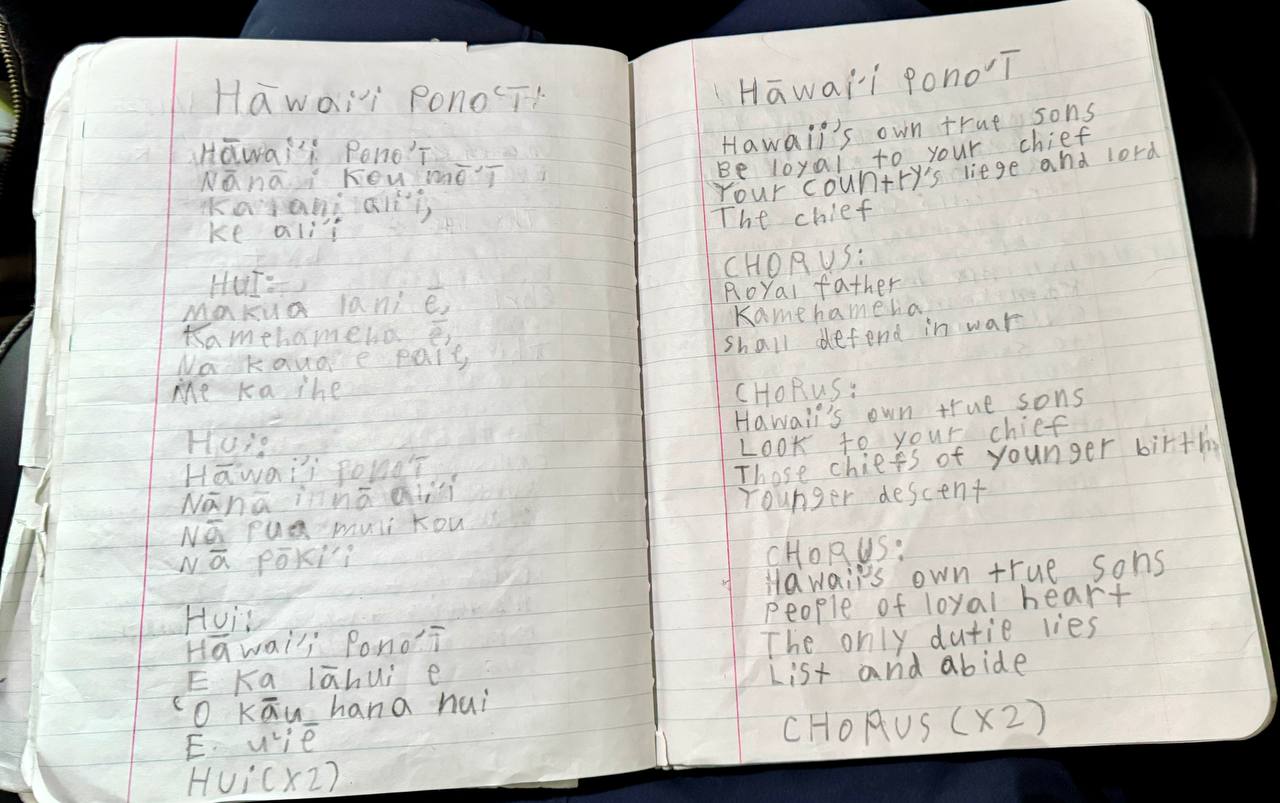 Hāwai'i Pono'Ī
Hāwai'i Pono'Ī
Nānā i kou mō'Ī
Ka lani ali'i,
Ke ali'i
HUI:
Makua lani ē,
Kamehameha ē,
Na kaua e pale,
Me ka ihe
Hui:
Hāwai'i pono'Ī
Nānā i nā ali'i
Nā pua muli kou
Nā pōki'i
Hui:
Hāwai'i Pono'Ī
E Ka lāhui e
'O kāu hana nui
E u'iē
HUi (X2)
Hāwai'i Pono'Ī
Hawaii's own true sons
Be loyal to your chief
Your country's liege and lord
The chief
CHORUS:
Royal father
Kamehameha
shall defend in war
CHORUS:
Hawaii's own true sons
Look to your chief
Those chiefs of younger birth
Younger descent
CHORUS:
Hawaii's own true sons
People of loyal heart
The only dutie lies
List and abide
CHORUS (X2)